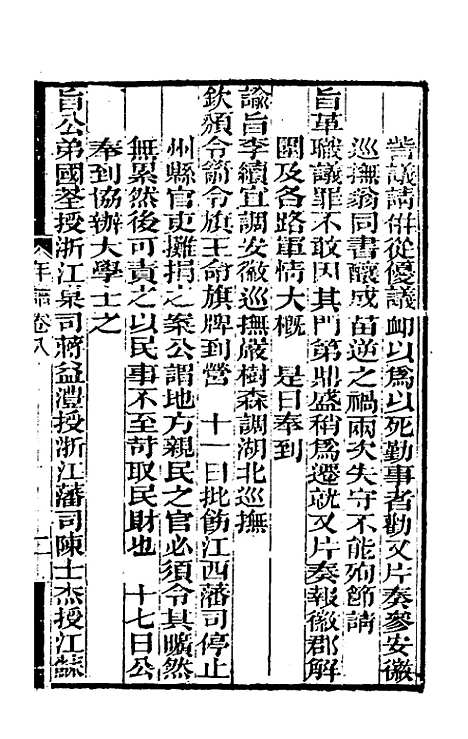 訾議請併從優議卹以爲以死勤事者勸又片奏參安徽
巡撫翁同書釀成苗逆之禍兩次失守不能殉節請
旨革職議罪不敢因其門第鼎盛稍爲遷就又片奏報徽郡解
圍及各路軍情大概　是日奉到
諭旨李續宜調安徽巡撫嚴樹森調湖北巡撫
欽頒令箭令旗王命旗牌到營　十一日批飭江西藩司停止
州縣官吏攤捐之案公謂地方親民之官必須令其曠然
無累然後可責之以民事不至苛取民財也　十七日公
奉到協辦大學士之
旨公弟國荃授浙江臬司蔣益澧授浙江藩司陳士杰授江蘇
年譜卷八